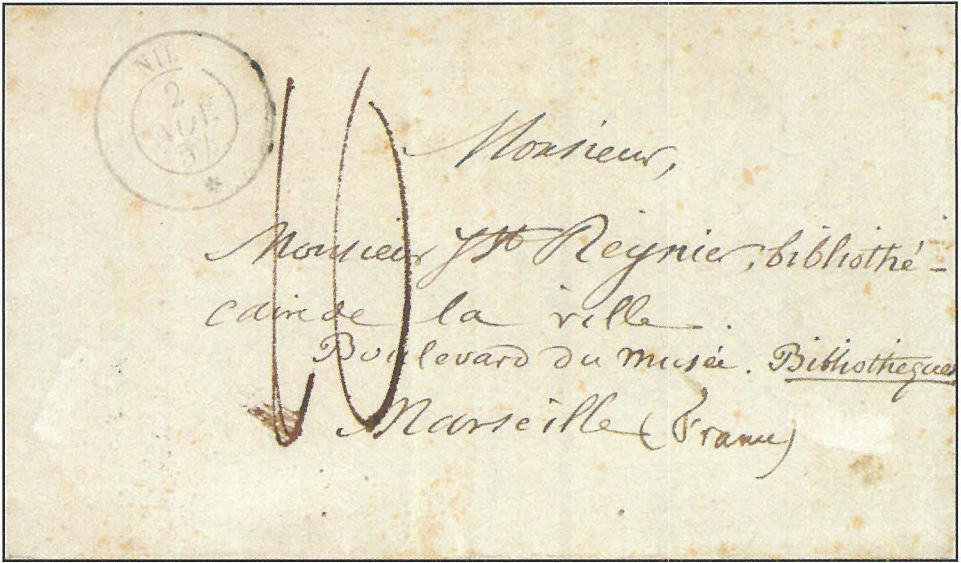 NIL
2
AOU
54
10
Monsieur,
Monsieur Jh Reynier, bibliothé-
caire de la ville.
Boulevard du musée. Bibliothèque
Marseille (France)